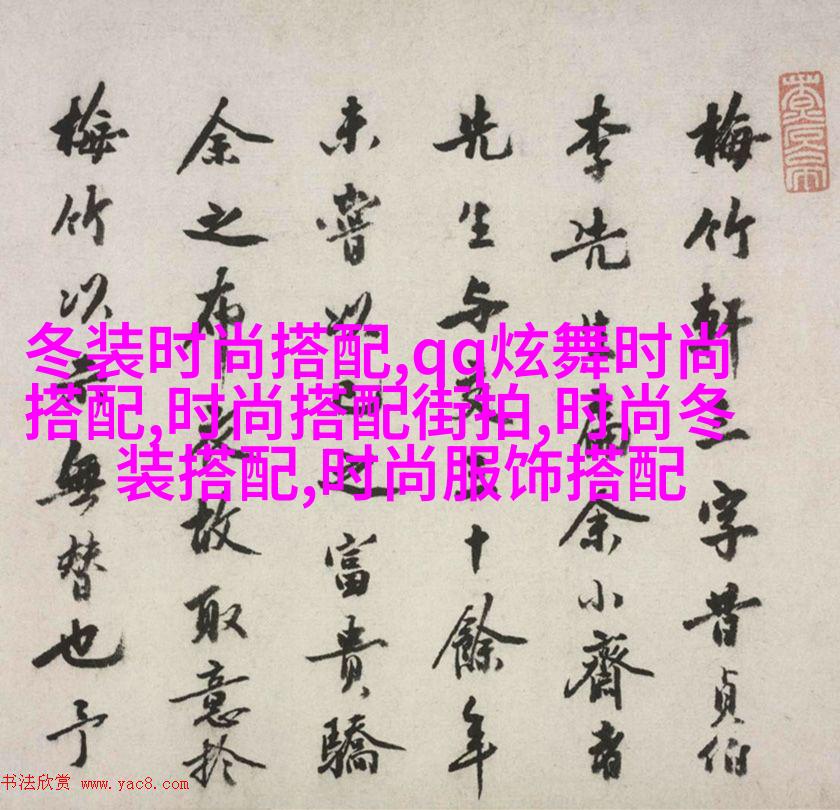 梅竹軒字昔貞伯
李先生余小齋者
先生与十餘年
未嘗之富貴驕
余之布故取意於
梅竹以無替也予
冬装时尚搭配,qq炫舞时尚
搭配,时尚搭配街拍,时尚冬
装搭配,时尚服饰搭配
书法欣赏 www.yac8.com